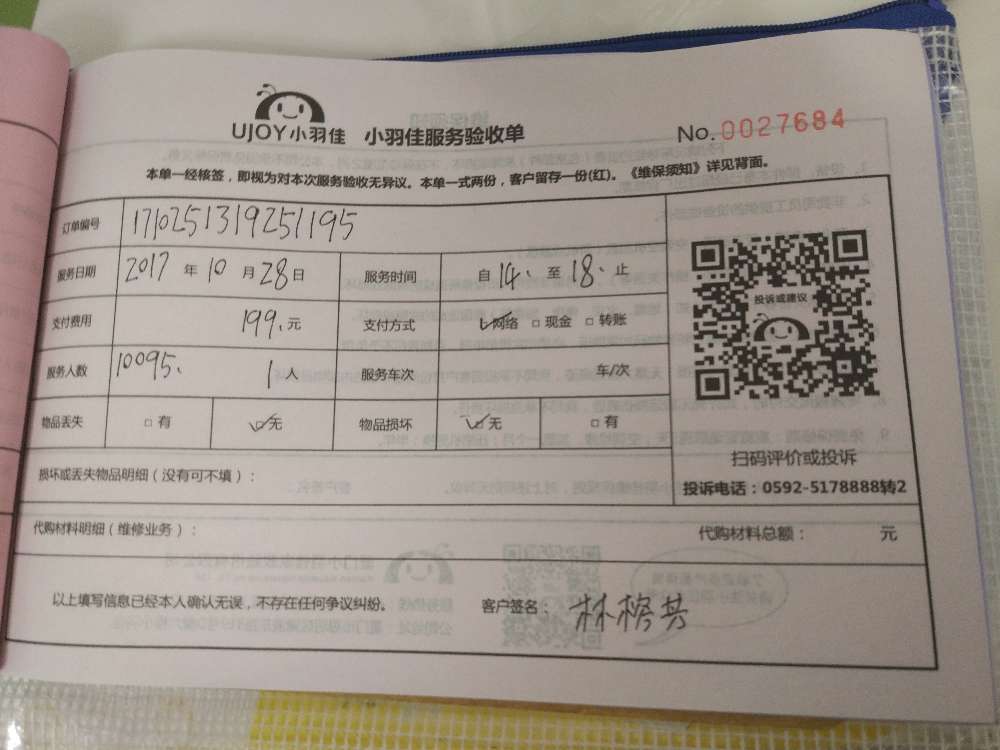 UJOY小羽佳 小羽佳服务验收单 No.0027684
本单一经核签，即视为对本次服务验收无异议。本单一式两份，客户留存一份(红)。《维保须知》详见背面。
订单编号 1710251319251195
服务日期 2017 年 10 月 28 日 服务时间 自 14. 至 18. 止
支付费用 199. 元 支付方式 ☑网络 □现金 □转账
服务人数 10095. 1 人 服务车次 车/次
物品丢失 □有 ☑无 物品损坏 ☑无 □有
投诉或建议
扫码评价或投诉
投诉电话：0592-5178888转2
损坏或丢失物品明细（没有可不填）：
代购材料明细（维修业务）： 代购材料总额： 元
以上填写信息已经本人确认无误，不存在任何争议纠纷。 客户签名： 林榕共